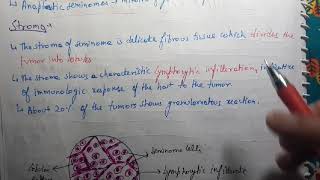 ↳ Anaplastic seminomas →
Stroma →
↳ The stroma of seminoma is delicate fibrous tissue which divides the
tumor into lobules
↳ The stroma shows a characteristic lymphocytic infiltration, indicative
of immunologic response of the host to the tumor.
↳ About 20% of the tumors shows granulomatous reaction.
Seminoma cells
Lymphocytic infiltrate